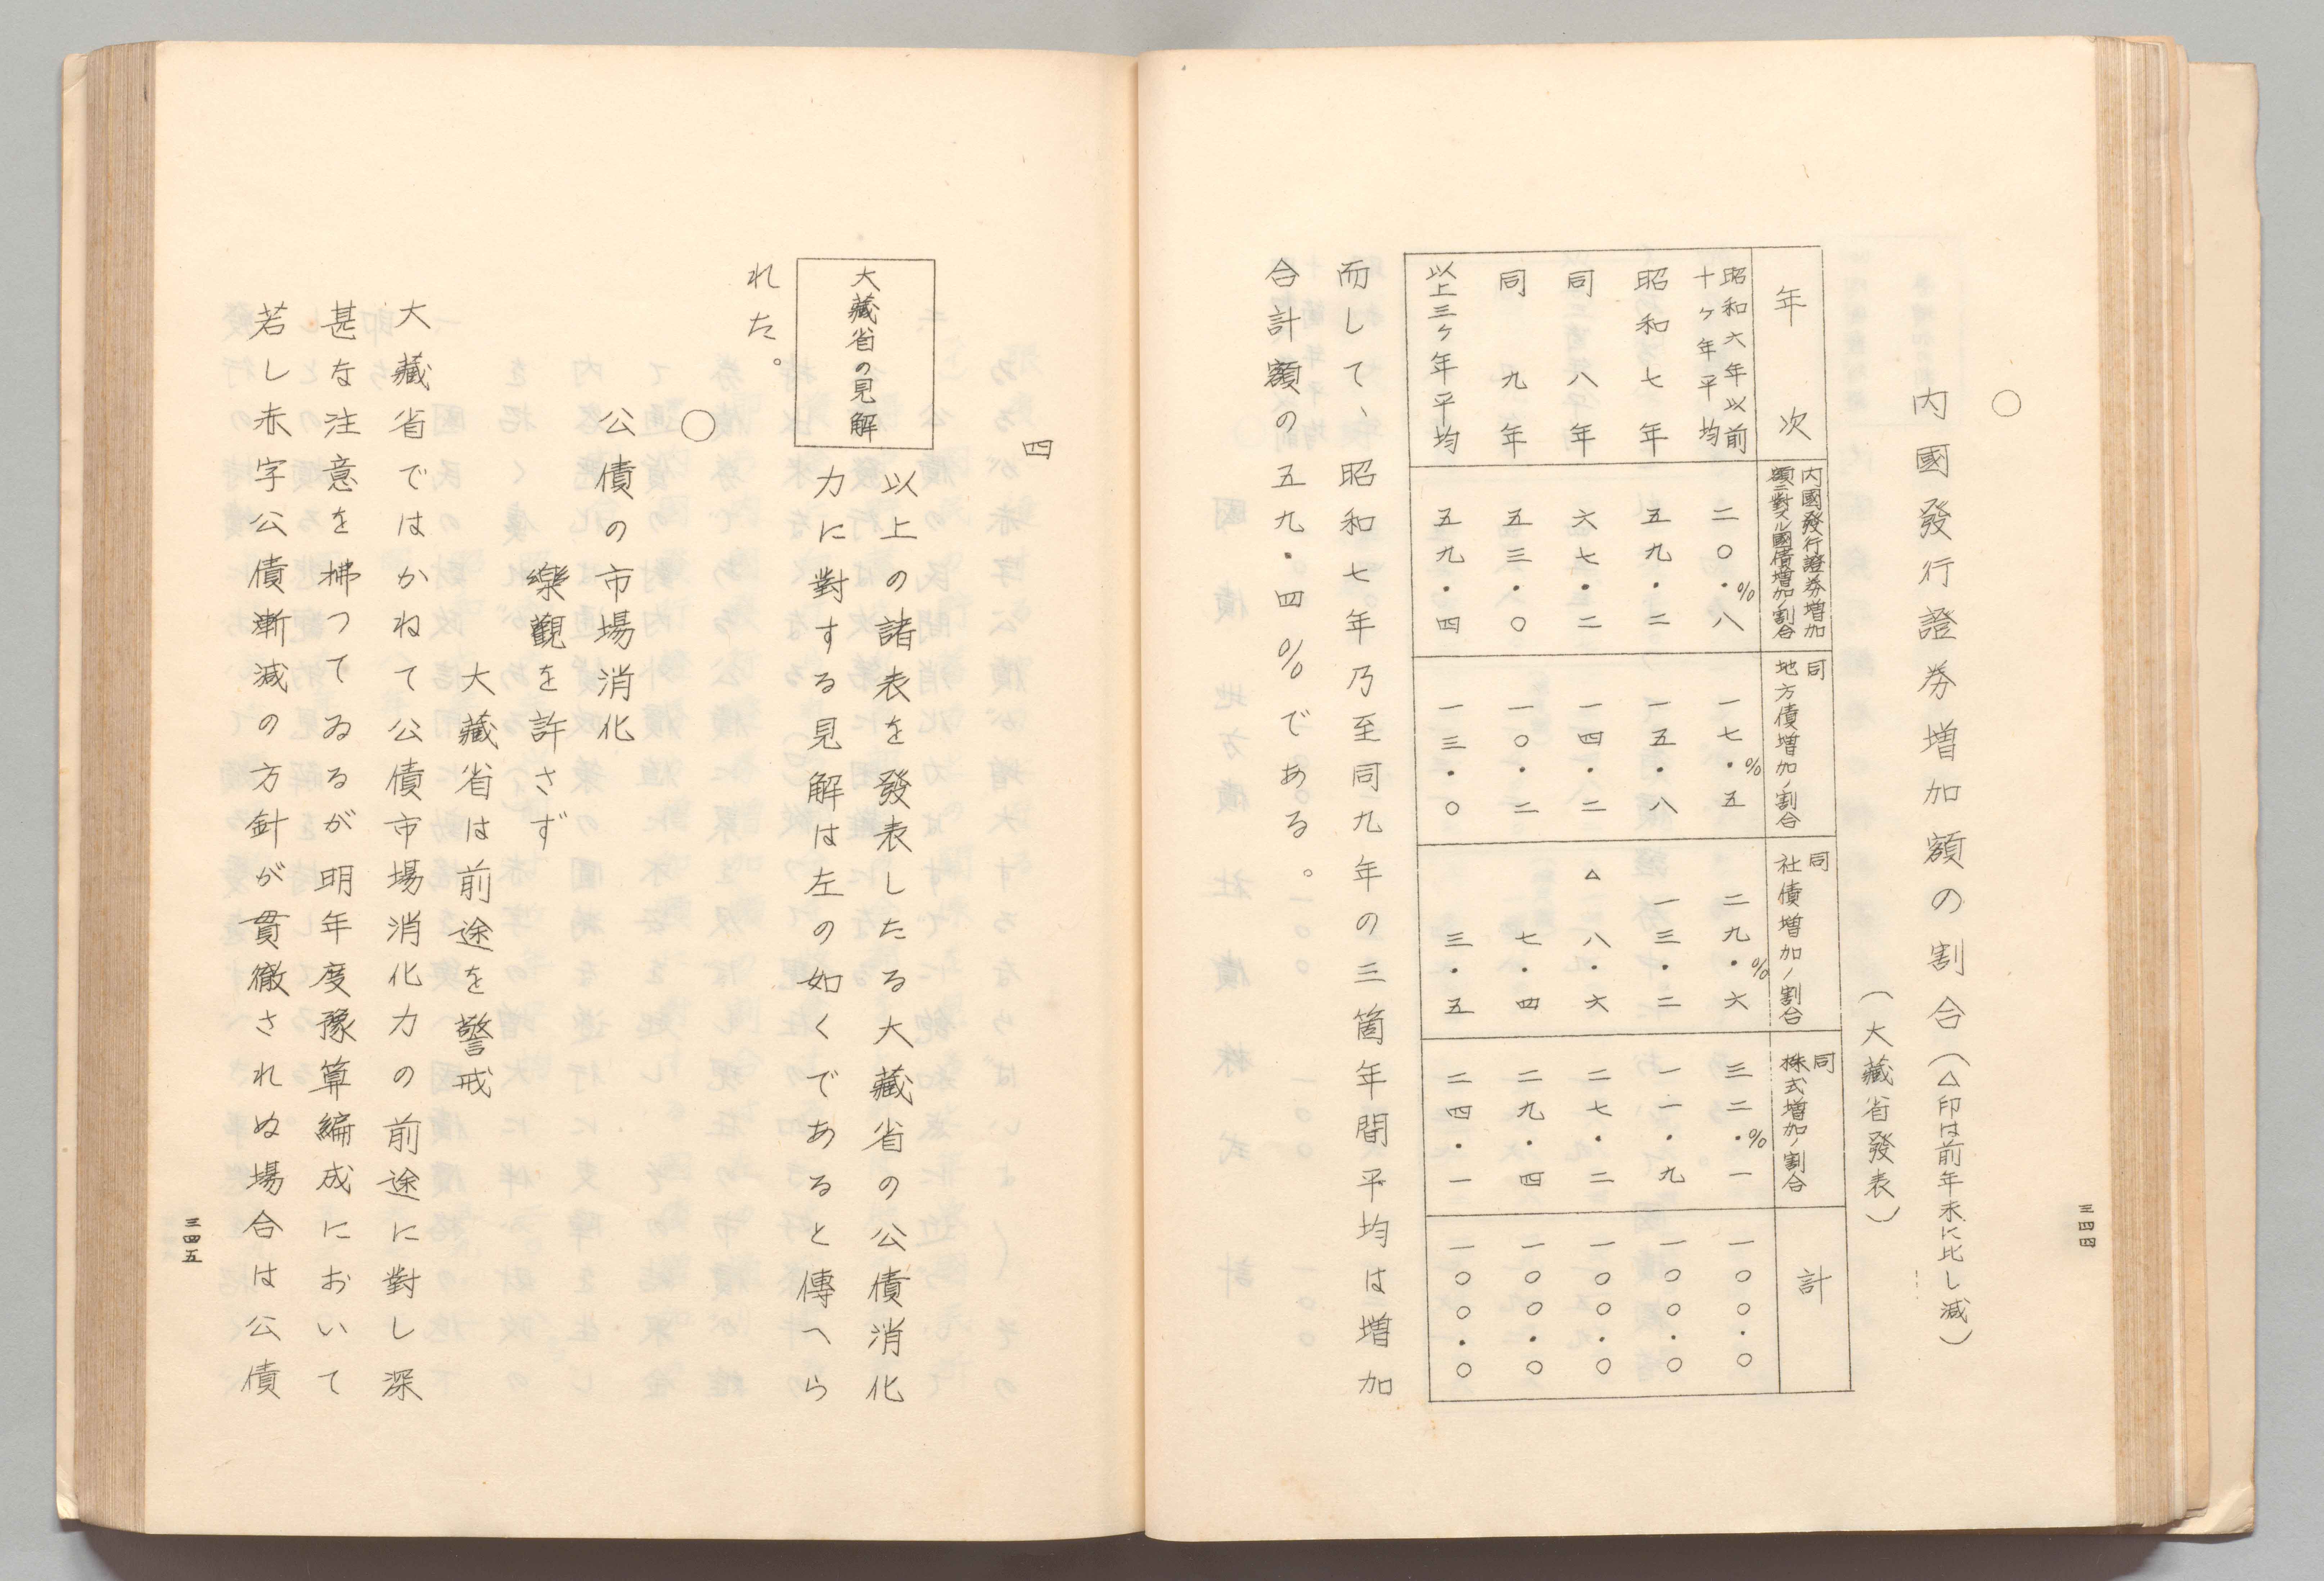 ○
内國發行證券増加額の割合（△印は前年末に比し減）
（大藏省發表）
年次
内國發行證券増加額ニ對スル國債増加ノ割合
同地方債増加ノ割合
同社債増加ノ割合
同株式増加ノ割合
計
昭和六年以前十ヶ年平均 二〇・八% 一七・五% 二九・六% 三二・一% 一〇〇・〇
昭和七年 五九・二 一五・八 一三・二 一一・九 一〇〇・〇
同八年 六七・二 一四・二 △八・六 二七・二 一〇〇・〇
同九年 五三・〇 一〇・二 七・四 二九・四 一〇〇・〇
以上三ヶ年平均 五九・四 一三・〇 三・五 二四・一 一〇〇・〇
而して、昭和七年乃至同九年の三箇年間平均は増加
合計額の五九・四%である。
三四四
四
大藏省の見解
以上の諸表を發表したる大藏省の公債消化
力に對する見解は左の如くであると傳へら
れた。
○
公債の市場消化
樂觀を許さず
大藏省は前途を警戒
大藏省ではかねて公債市場消化力の前途に對し深
甚な注意を拂つてゐるが明年度豫算編成において
若し赤字公債漸減の方針が貫徹されぬ場合は公債
三四五